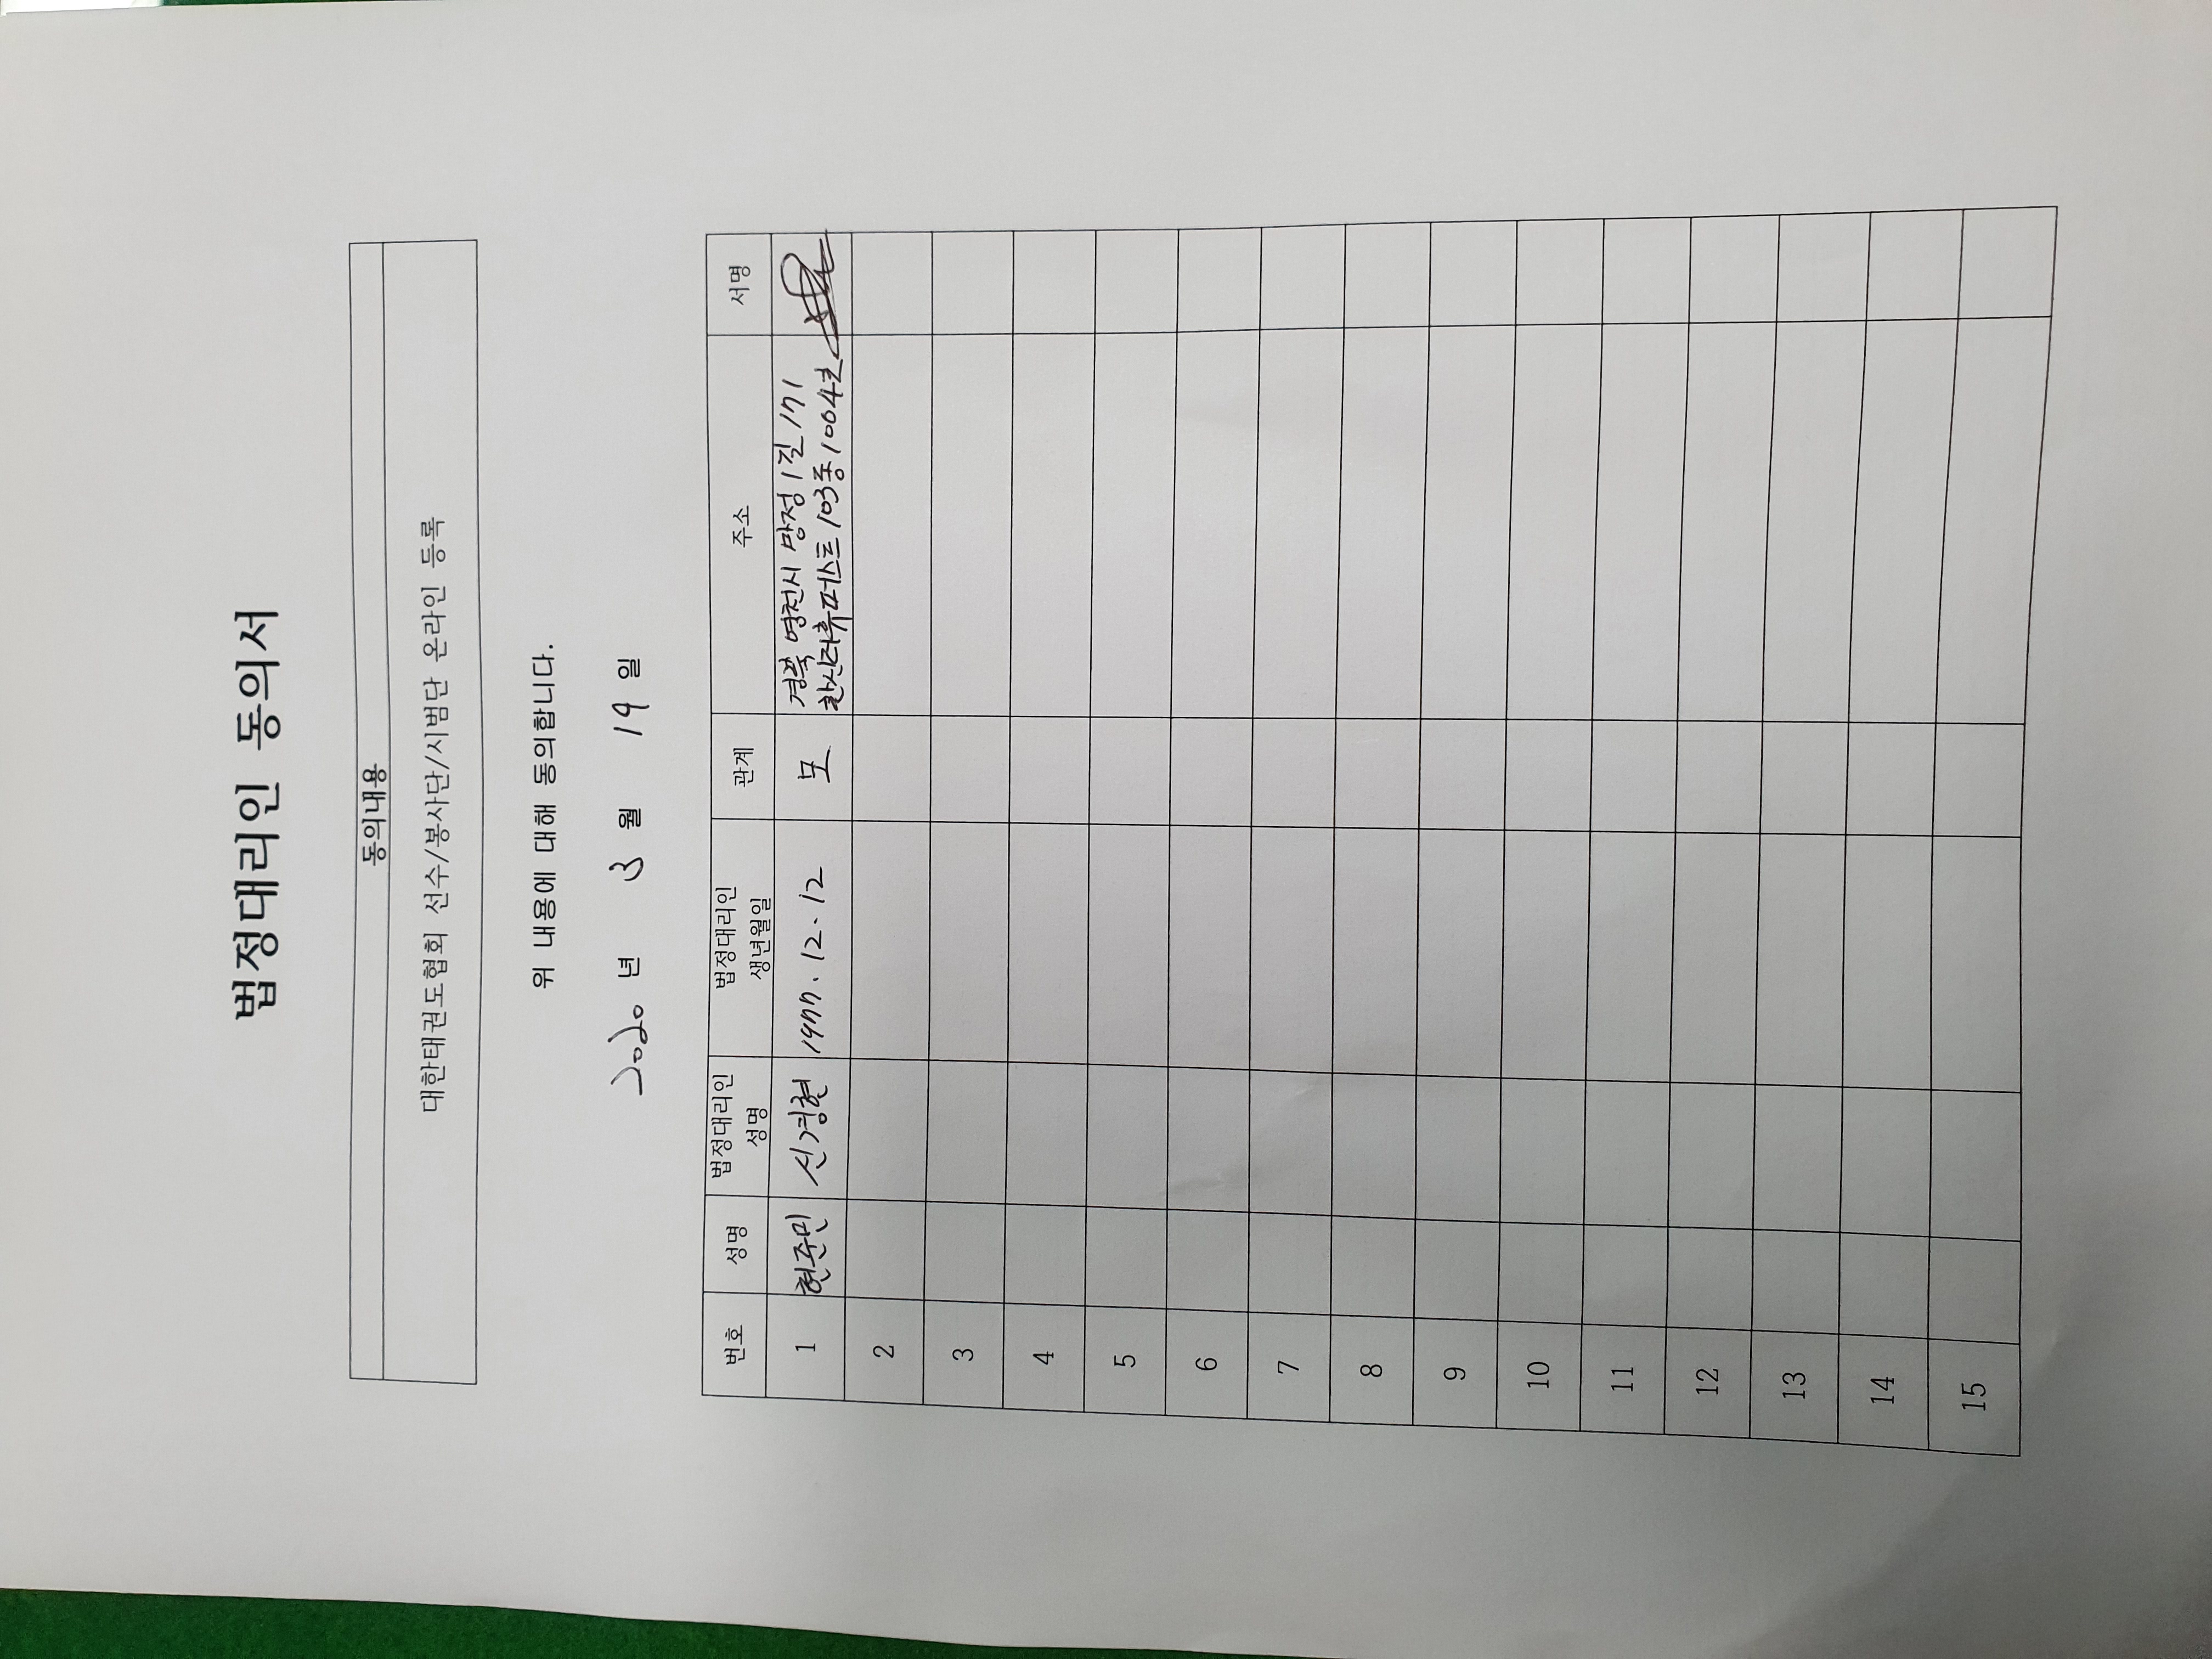 법정대리인 동의서
동의내용
대한태권도협회 선수/봉사단/시범단 온라인 등록
위 내용에 대해 동의합니다.
2020 년 3 월 19 일
번호 성명 법정대리인 성명 법정대리인 생년월일 관계 주소 서명
1 현준민 신경현 1977.12.12 모 경북 영천시 망정1길 171
한신더휴퍼스트 103동 1004호
2
3
4
5
6
7
8
9
10
11
12
13
14
15